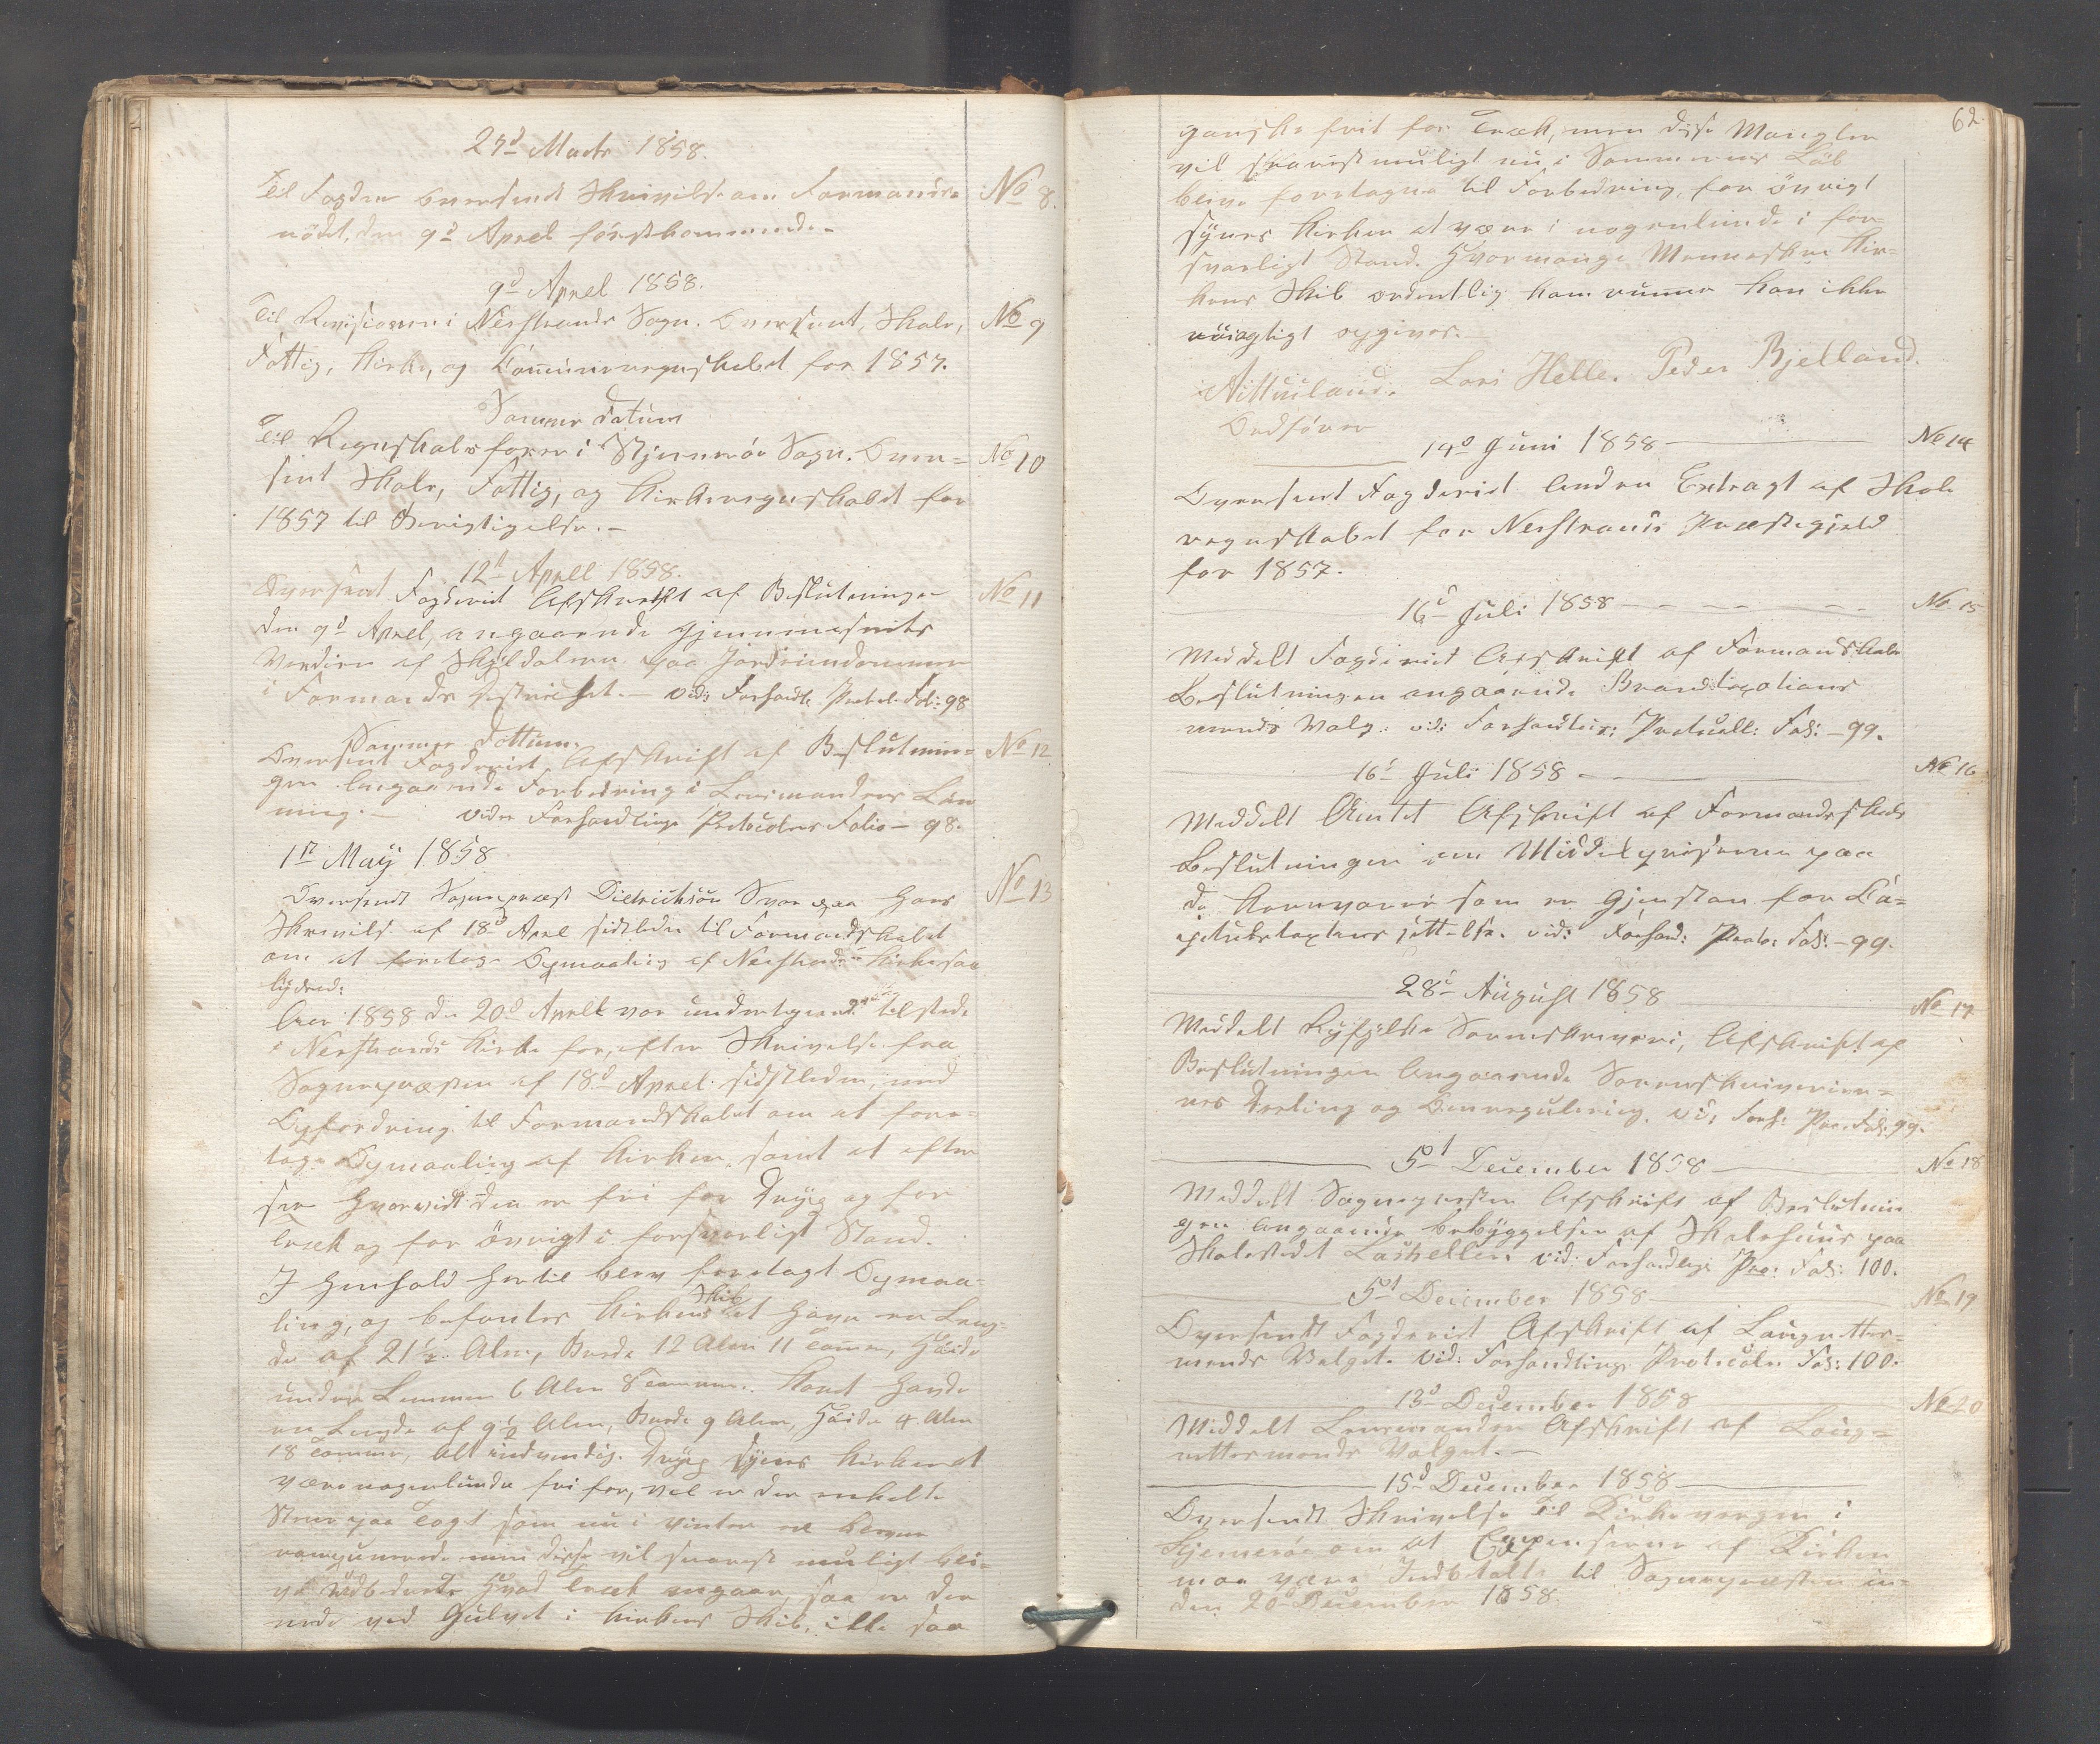 27d Marts 1858.
Til Fogden oversendt Skrivelse om Formands- No 8.
mödet, den 9d Aprel förstkommende.
9d Aprel 1858.
Til Revisionen i Nerstrands Sogn. Oversent, Skole, No 9
Fattig, Kirke, og Communeregnskabet for 1857.
Samme Datum
Til Regnskabsforer i Stjernerös Sogn. Over= No 10
sent Skole, Fattig, og Kirkeregnskabet for
1857 til Berigtigelse.-
12t Aprell 1858.
Oversent Fogderiet Afskreft af Beslutningen No 11
den 9d Aprel, angaaende Gjennemsnits
Verdien af Skyldaleren paa Jordeiendommene
i Formands Distriktet.- vid: Forhandls Protcl. Fol: 98
Samme Dattum.
Oversent Fogderiet Afskrift af Beslutnin= No 12
gen Angaaende Forbedring i Lensmandens Løn
ning.- vider Forhandlings Protocolens Folio - 98.
1st May 1858
Oversendt Sognepræst Dietrichson Svar paa Hans No 13
Skrivels af 18d Aprel sidstleden til Formandskabet
om at foretage Opmaaling af Nerstrands Kirke saa
lydend:
Aar 1858 den 20d Aprell var undertegnende tilstede
i Nerstrands Kirke for, efter Skrivelse fra
Sognepræsten af 18d Aprel sidstleden, med
Opfordring til Formandskabet om at fore=
tage Opmaaling af Kirken, samt at efter
see hvorvidt den er fri for Dryp og for
Træk og for övrigt i forsvarligt Stand.
I Henhold hertil blev foretagt Opmaa=
ling, og befantes Kirkens Skib at have en Leng=
de af 21½ Alen, Brede 12 Alen 11 Tomer, Höide
under Lemmen 6 Alen 8 Tommer. Koret havde
en Lengde af 9½ Alen, Brede 9 Alen, Höide 4 Alen
18 Tommer, alt indvendig. Dryp synes Kirken at
være nogenlunde fri for, vel er der enkelte
Steen paa Taget som nu i Vinter er bleven
ramponerede men disse vil snarest muligt bli=
ve udbedrede. Hvad Træk angaar, saa er der
nede ved Gulvet i Kirkens Skib, ikke saa
62
ganske frit for Træk, men disse Mangler
vil snarestmuligt nu i Sommerens Löb
blive foretagne til Forbedring, for övrigt
synes Kirken at være i nogenlunde i for-
svarligt Stand. Hvormange Mennesker Kir=
kens Skib ordentlig kan rumme kan ikke
nöiagtigt opgives.
Lars Helle. Peder Bjelland.
Ordförer
14d Juni 1858 No 14
Oversendt Fogderiet Anden Extragt af Skole
regnskabet for Nerstrands Præstegjeld
for 1857.
16d Juli 1858 No 15
Meddelt Fogderiet Afskrift af Formandskabs
Beslutningen angaaende Brandtaxations
mends Valg: vid: Forhandlin: Protcoll: Fol: - 99.
16d Juli 1858 No 16
Meddelt Amtet Afskrift af Formandskabs
Beslutningen om Middelpriserne paa
de Kornvarer som er Gjenstan for Ca=
pitelstaxtens settelse. vid: Forhand: Proto: Fol: - 99.
28d August 1858 No 17
Meddelt Ryfylke Sorenskriveri, Afskrift af
Beslutningen Angaaende Sorenskriverier=
nes Deeling og Omregulering. vid: Forh: Pro. Fol: 99.
5t December 1858 No 18
Meddelt Sognepresten Afskrift af Beslutnin
gen angaaende bebyggelsen af Skolehuus paa
Skolestedet Laskellen vid: Forhandlngs Pro: Fol: 100.
5t December 1858 No 19
Oversendt Fogderiet Afskrift af Laugrettes=
mends Valget. vid: Forhandlings Protocoln Fol: 100.
13d December 1858 No 20
Meddelt Lensmanden Afskrift af Laug=
rettesmends Valget.-
15d December 1858
Oversendt Skrivelse til Kirkevergen i
Stjernerøe om at Expenserne af Kirken
maa være Indbetalt til Sognepræsten in=
den 20d December 1858.